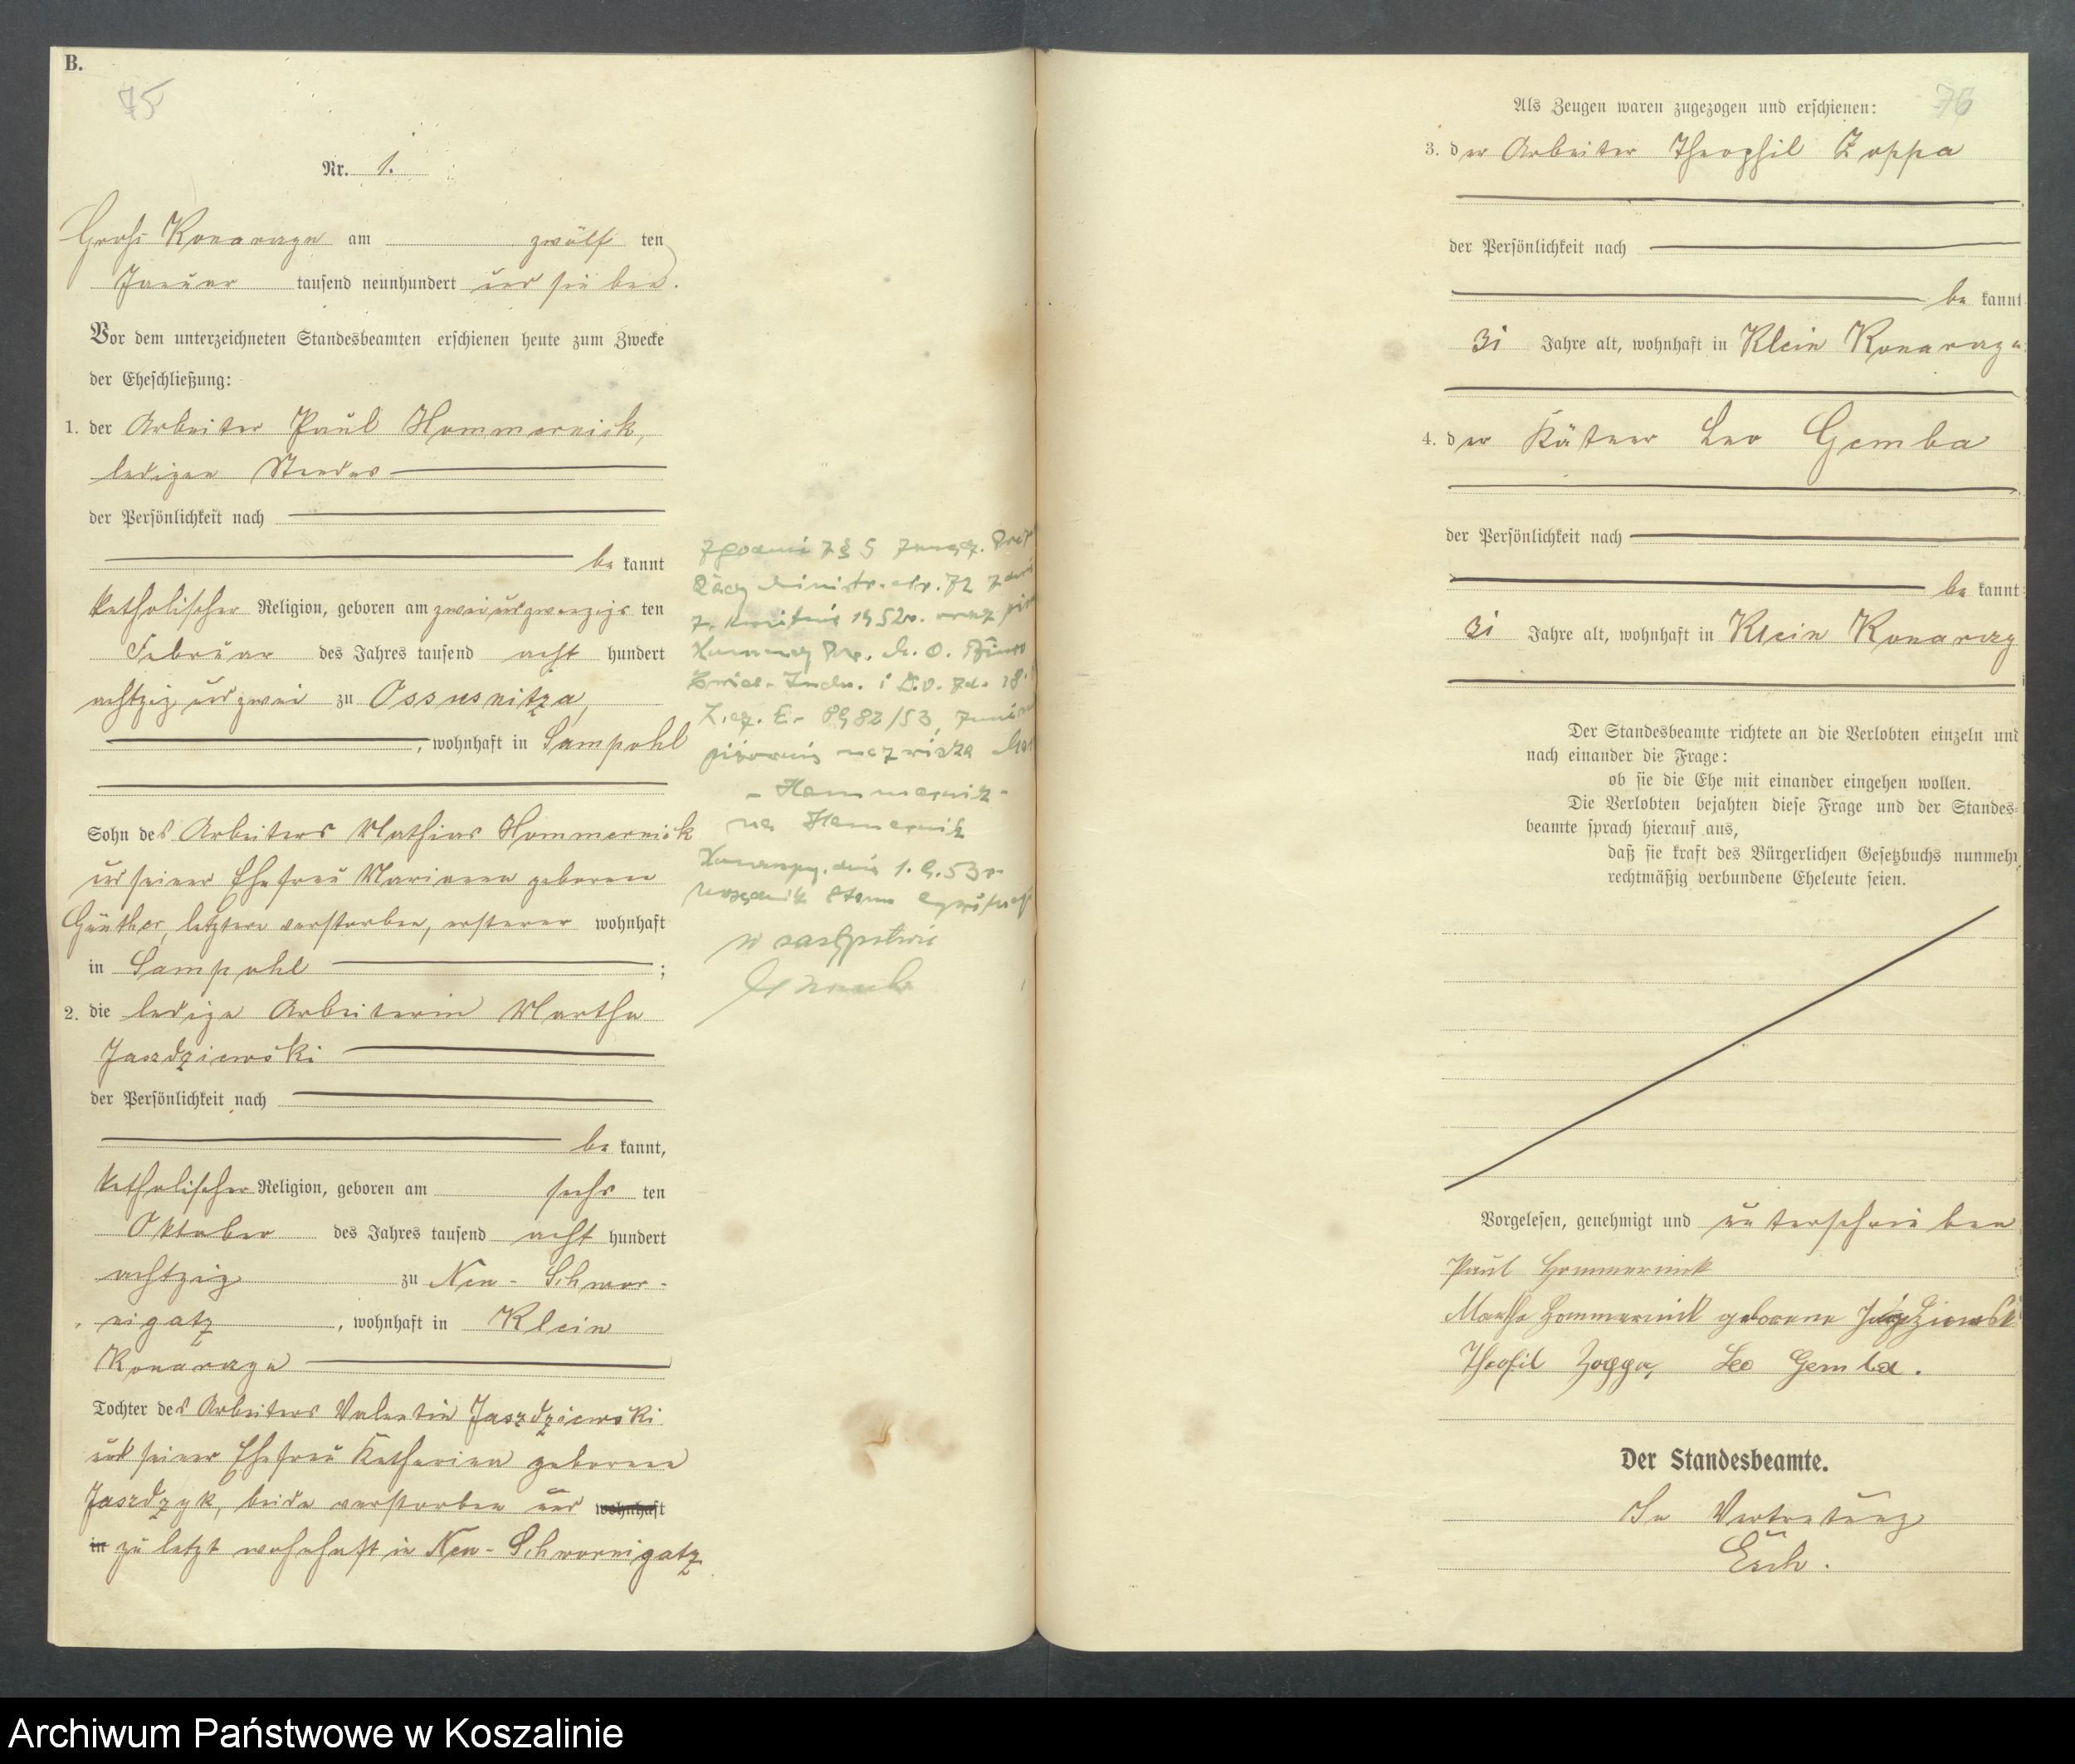 B.
75
Nr. 1.
Groß Konarzyn am zwölf ten
Januar tausend neunhundert und sieben.
Vor dem unterzeichneten Standesbeamten erschienen heute zum Zwecke
der Eheschließung:
1. der Arbeiter Paul Hommernick,
ledigen Standes
der Persönlichkeit nach
be kannt
katholischer Religion, geboren am zweiundzwanzigs ten
Februar des Jahres tausend acht hundert
achtzig und zwei zu Ossusnitza,
, wohnhaft in Sampohl
Sohn des Arbeiters Mathias Hommernick
und seiner Ehefrau Marianna geborene
Günther, letztere verstorben, ersterer wohnhaft
in Sampohl ;
2. die ledige Arbeiterin Martha
Jaszdziewski
der Persönlichkeit nach
be kannt,
katholischer Religion, geboren am sechs ten
Oktober des Jahres tausend acht hundert
achtzig zu Neu-Schwor-
nigatz , wohnhaft in Klein
Konarzyn
Tochter des Arbeiters Valentin Jaszdziewski
und seiner Ehefrau Katharina geborene
Jaszdzyk, beide verstorben und wohnhaft
in zu letzt wohnhaft in Neu-Schwornigatz
Zgodnie z § 5
72
z. kwietnia 1952r. oraz
i
L.cz. E- 8982/53,
nazwiska
- Hammernik -
na Hamernik
1.9.53r.
w zastępstwie
76
Als Zeugen waren zugezogen und erschienen:
3. der Arbeiter Theophil Zoppa
der Persönlichkeit nach
be kannt
31 Jahre alt, wohnhaft in Klein Konarzyn
4. der Kätner Leo Gemba
der Persönlichkeit nach
be kannt
31 Jahre alt, wohnhaft in Klein Konarzy
Der Standesbeamte richtete an die Verlobten einzeln und
nach einander die Frage:
ob sie die Ehe mit einander eingehen wollen.
Die Verlobten bejahten diese Frage und der Standes-
beamte sprach hierauf aus,
daß sie kraft des Bürgerlichen Gesetzbuchs nunmehr
rechtmäßig verbundene Eheleute seien.
Vorgelesen, genehmigt und unterschrieben
Paul Hommernick
Martha Hommernick geborene
Theofil Zoppa, Leo Gemba.
Der Standesbeamte.
In Vertretung
Esch.
Archiwum Państwowe w Koszalinie